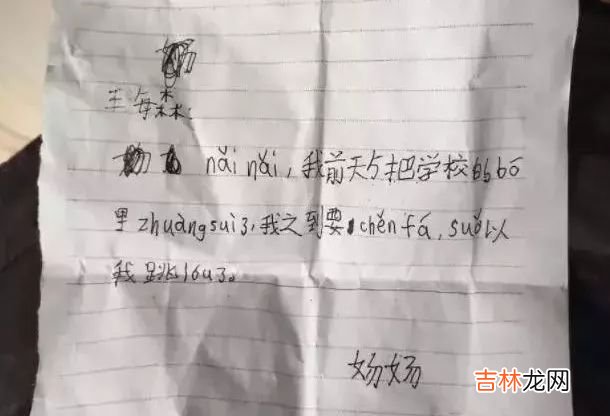 王每森:
nǎi nǎi,我前天与把学校的bō
里zhuàngsuì了,我之到要chěnfá,suǒ以
我跳lóu了。
吉林龙网